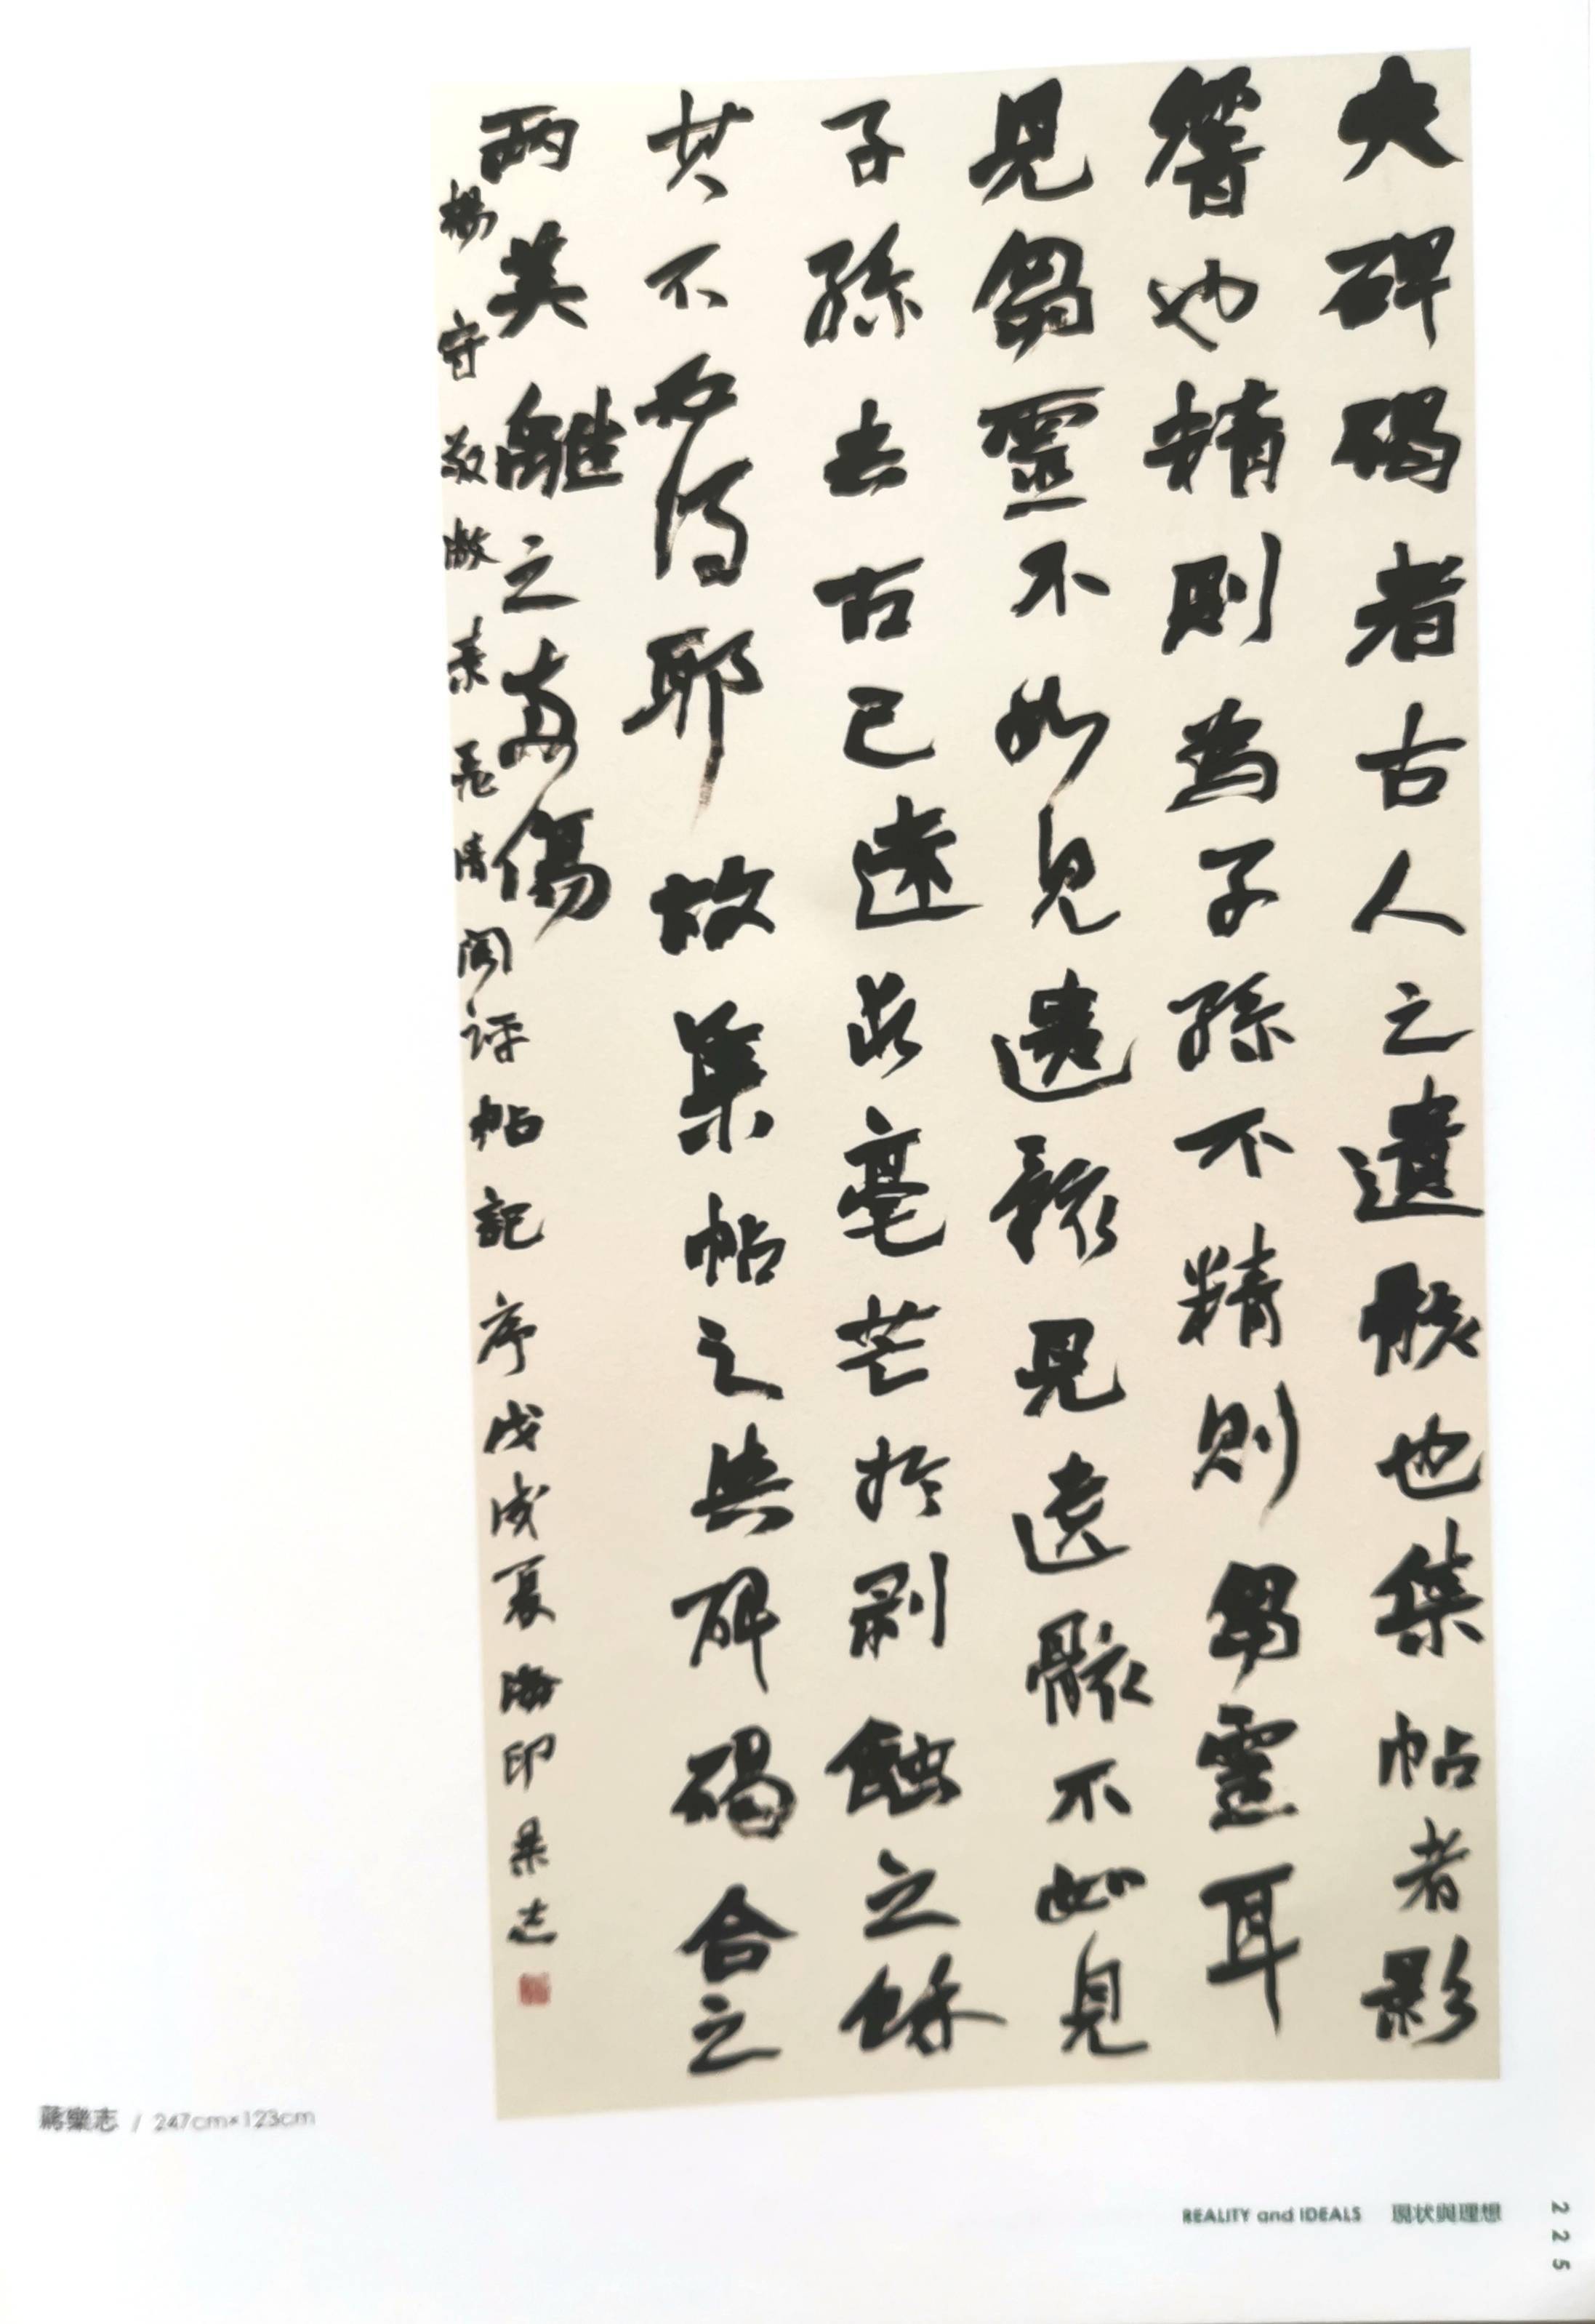 夫碑碣者古人之遺骸也集帖者影
響也精則為子孫不精則芻靈耳
見芻靈不如見遺骸見遺骸不如見
子孫去古已遠求毫芒於剝蝕之餘
其不可得耶故集帖之與碑碣合之
兩美離之兩傷
楊守敬激素飛清閣評帖記序戊戌夏海印樂志
蔣樂志 / 247cm×123cm
REALITY and IDEALS 現狀與理想
225